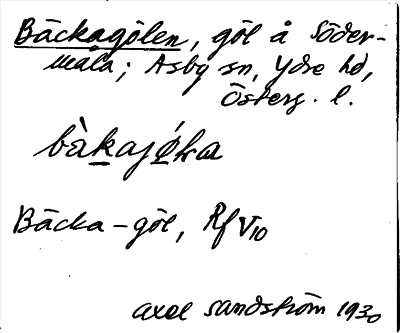 Bäckagölen, göl å Söder-
måla; Asby sn, Ydre hd,
Österg. l.
Bäcka-göl, Rf V10
Axel Sandström 1930